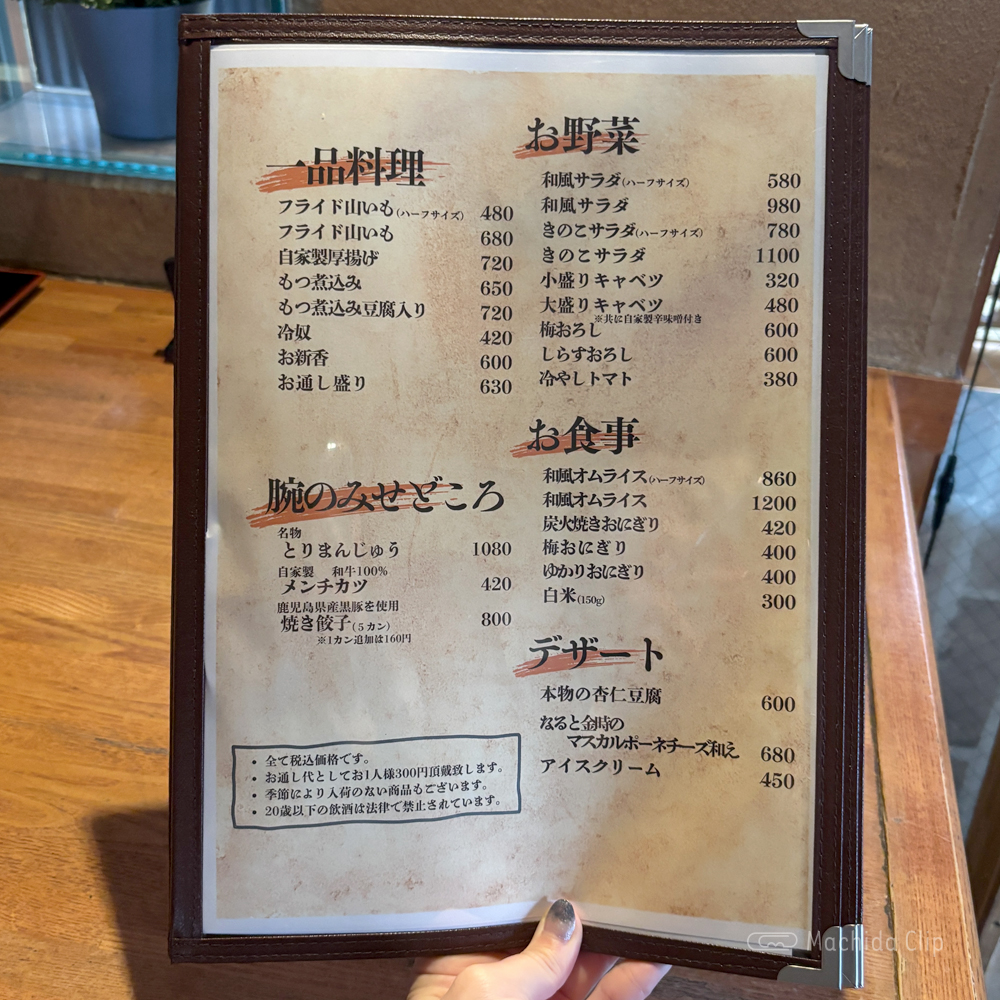 一品料理
フライド山いも(ハーフサイズ) 480
フライド山いも 680
自家製厚揚げ 720
もつ煮込み 650
もつ煮込み豆腐入り 720
冷奴 420
お新香 600
お通し盛り 630
腕のみせどころ
名物
とりまんじゅう 1080
自家製 和牛100%
メンチカツ 420
鹿児島県産黒豚を使用
焼き餃子(5カン) 800
※1カン追加は160円
・全て税込価格です。
・お通し代としてお1人様300円頂戴致します。
・季節により入荷のない商品もございます。
・20歳以下の飲酒は法律で禁止されています。
お野菜
和風サラダ(ハーフサイズ) 580
和風サラダ 980
きのこサラダ(ハーフサイズ) 780
きのこサラダ 1100
小盛りキャベツ 320
大盛りキャベツ 480
※共に自家製辛味噌付き
梅おろし 600
しらすおろし 600
冷やしトマト 380
お食事
和風オムライス(ハーフサイズ) 860
和風オムライス 1200
炭火焼きおにぎり 420
梅おにぎり 400
ゆかりおにぎり 400
白米(150g) 300
デザート
本物の杏仁豆腐 600
なると金時の
マスカルポーネチーズ和え 680
アイスクリーム 450
Machida Clip